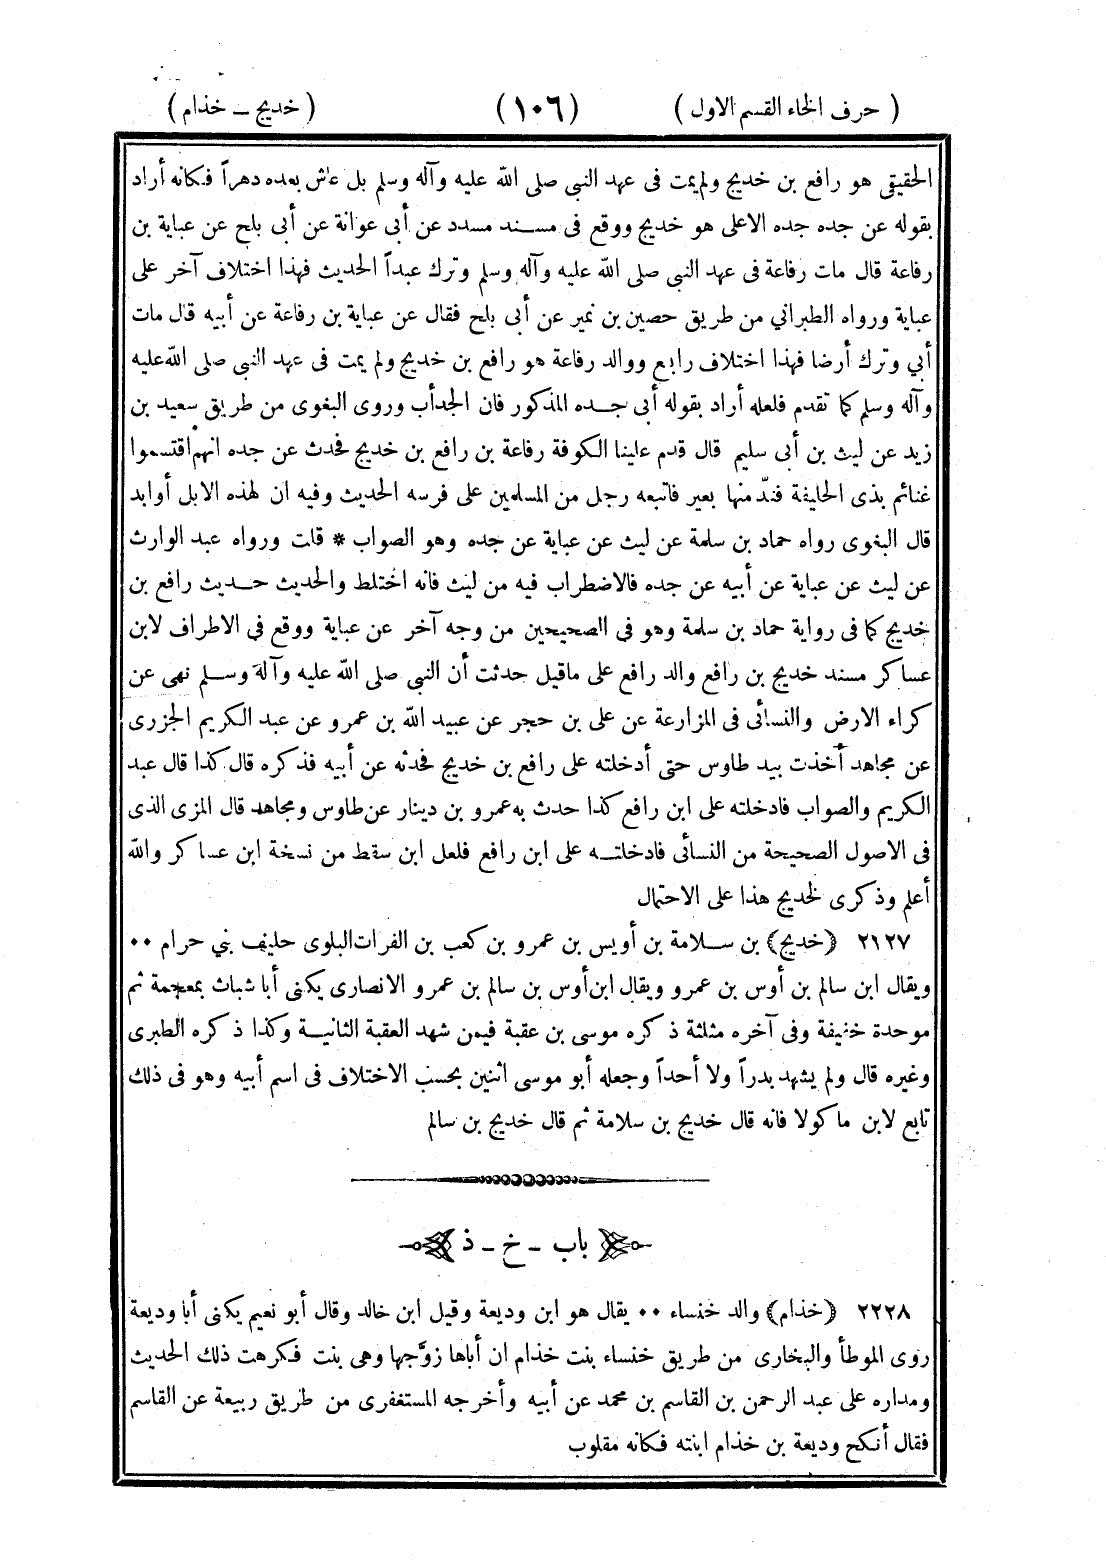 ( حرف الخاء القسم الاول ) (١٠٦) ( خديج ـ خذام )
الحقيقى هو رافع بن خديج ولم يمت فى عهد النبى صلى الله عليه وآله وسلم بل عاش بعده دهراً فكانه أراد
بقوله عن جده جده الاعلى هو خديج ووقع فى مسند مسدد عن أبى عوانة عن أبى بلج عن عباية بن
رفاعة قال مات رفاعة فى عهد النبى صلى الله عليه وآله وسلم وترك عبداً الحديث فهذا اختلاف آخر على
عباية ورواه الطبراني من طريق حصين بن نمير عن أبى بلج فقال عن عباية بن رفاعة عن أبيه قال مات
أبي وترك أرضا فهذا اختلاف رابع ووالد رفاعة هو رافع بن خديج ولم يمت فى عهد النبى صلى الله عليه
وآله وسلم كما تقدم فلعله أراد بقوله أبى جده المذكور فان الجد أب وروى البغوى من طريق سعيد بن
زيد عن ليث بن أبى سليم قال قدم علينا الكوفة رفاعة بن رافع بن خديج فحدث عن جده انهم اقتسموا
غنائم بذى الحليفة فندّ منها بعير فاتبعه رجل من المسلمين على فرسه الحديث وفيه ان لهذه الابل أوابد
قال البغوى رواه حماد بن سلمة عن ليث عن عباية عن جده وهو الصواب * قلت ورواه عبد الوارث
عن ليث عن عباية عن أبيه عن جده فالاضطراب فيه من ليث فانه اختلط والحديث حديث رافع بن
خديج كما فى رواية حماد بن سلمة وهو فى الصحيحين من وجه آخر عن عباية ووقع في الاطراف لابن
عساكر مسند خديج بن رافع والد رافع على ماقيل حدثت أن النبى صلى الله عليه وآله وسلم نهى عن
كراء الارض والنسائى فى المزارعة عن على بن حجر عن عبيد الله بن عمرو عن عبد الكريم الجزرى
عن مجاهد أخذت بيد طاوس حتى أدخلته على رافع بن خديج فحدثه عن أبيه فذكره قال كذا قال عبد
الكريم والصواب فادخلته على ابن رافع كذا حدث به عمرو بن دينار عن طاوس ومجاهد قال المزى الذى
فى الاصول الصحيحة من النسائى فادخلته على ابن رافع فلعل ابن سقط من نسخة ابن عساكر والله
أعلم وذكرى لخديج هذا على الاحتمال
٢١٢٧ (خديج) بن سلامة بن أويس بن عمرو بن كعب بن الفرات البلوى حليف بني حرام ٠٠
ويقال ابن سالم بن أوس بن عمرو ويقال ابن أوس بن سالم بن عمرو الانصارى يكنى أبا شباث بمعجمة ثم
موحدة خفيفة وفى آخره مثلثة ذكره موسى بن عقبة فيمن شهد العقبة الثانية وكذا ذكره الطبرى
وغيره قال ولم يشهد بدراً ولا أحداً وجعله أبو موسى اثنين بحسب الاختلاف فى اسم أبيه وهو فى ذلك
تابع لابن ماكولا فانه قال خديج بن سلامة ثم قال خديج بن سالم
باب ـ خ ـ ذ
٢٢٢٨ (خذام) والد خنساء ٠٠ يقال هو ابن وديعة وقيل ابن خالد وقال أبو نعيم يكنى أبا وديعة
روى الموطأ والبخارى من طريق خنساء بنت خذام ان أباها زوّجها وهى بنت فكرهت ذلك الحديث
ومداره على عبد الرحمن بن القاسم بن محمد عن أبيه وأخرجه المستغفرى من طريق ربيعة عن القاسم
فقال أنكح وديعة بن خذام ابنته فكانه مقلوب